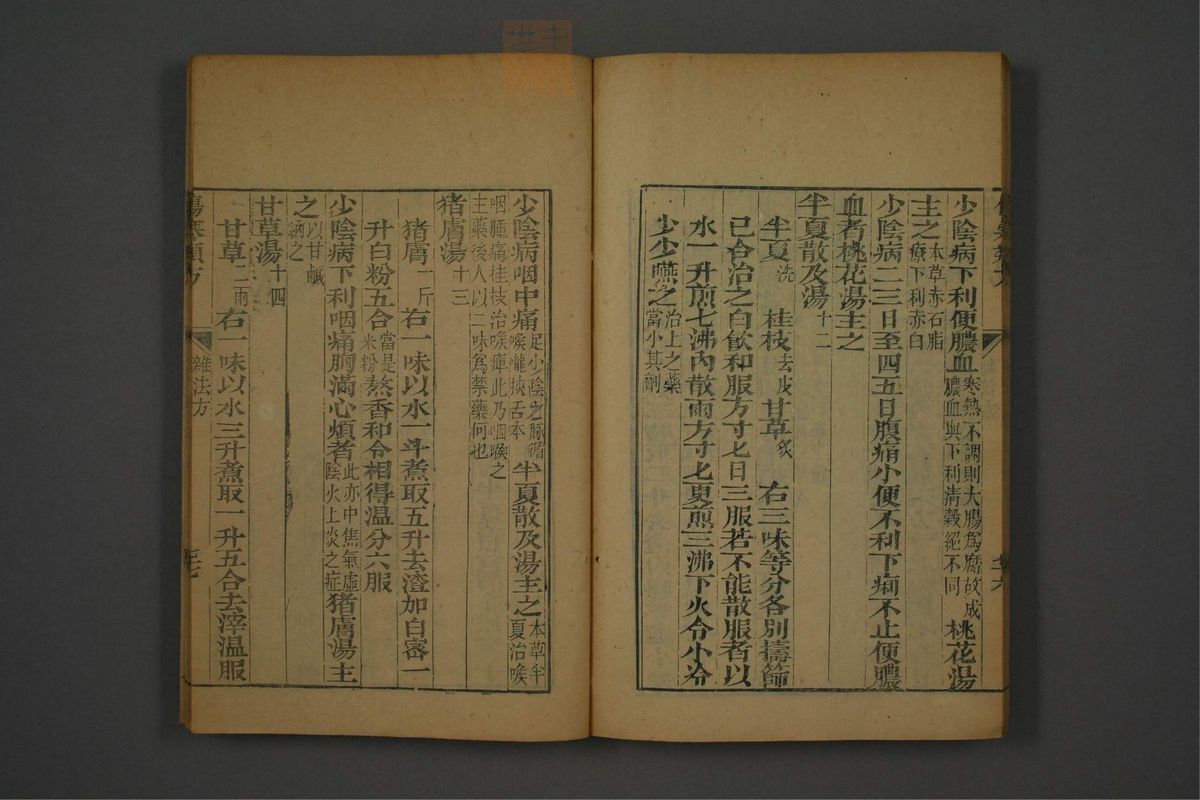 少陰病下利便膿血寒熱不調則大腸爲腐故成膿血與下利清穀絕不同桃花湯
主之本草赤石脂療下利赤白
少陰病二三日至四五日腹痛小便不利下痢不止便膿
血者桃花湯主之
半夏散及湯十二
半夏洗 桂枝去皮 甘草炙 右三味等分各別擣篩
已合治之白飲和服方寸匕日三服若不能散服者以
水一升煎七沸內散兩方寸匕更煎三沸下火令小冷
少少嚥之治上之藥當小其劑
少陰病咽中痛足少陰之脉循喉嚨挾舌本半夏散及湯主之本草半夏治喉
咽腫痛桂枝治喉痺此乃咽喉之主藥後人以二味爲禁藥何也
猪膚湯十三
猪膚一斤 右一味以水一斗煮取五升去渣加白蜜一
升白粉五合當是米粉熬香和令相得溫分六服
少陰病下利咽痛胸滿心煩者此亦中焦氣虛陰火上炎之症猪膚湯主
之以甘鹹納之
甘草湯十四
甘草二兩 右一味以水三升煮取一升五合去滓溫服
傷寒類方 雜法方